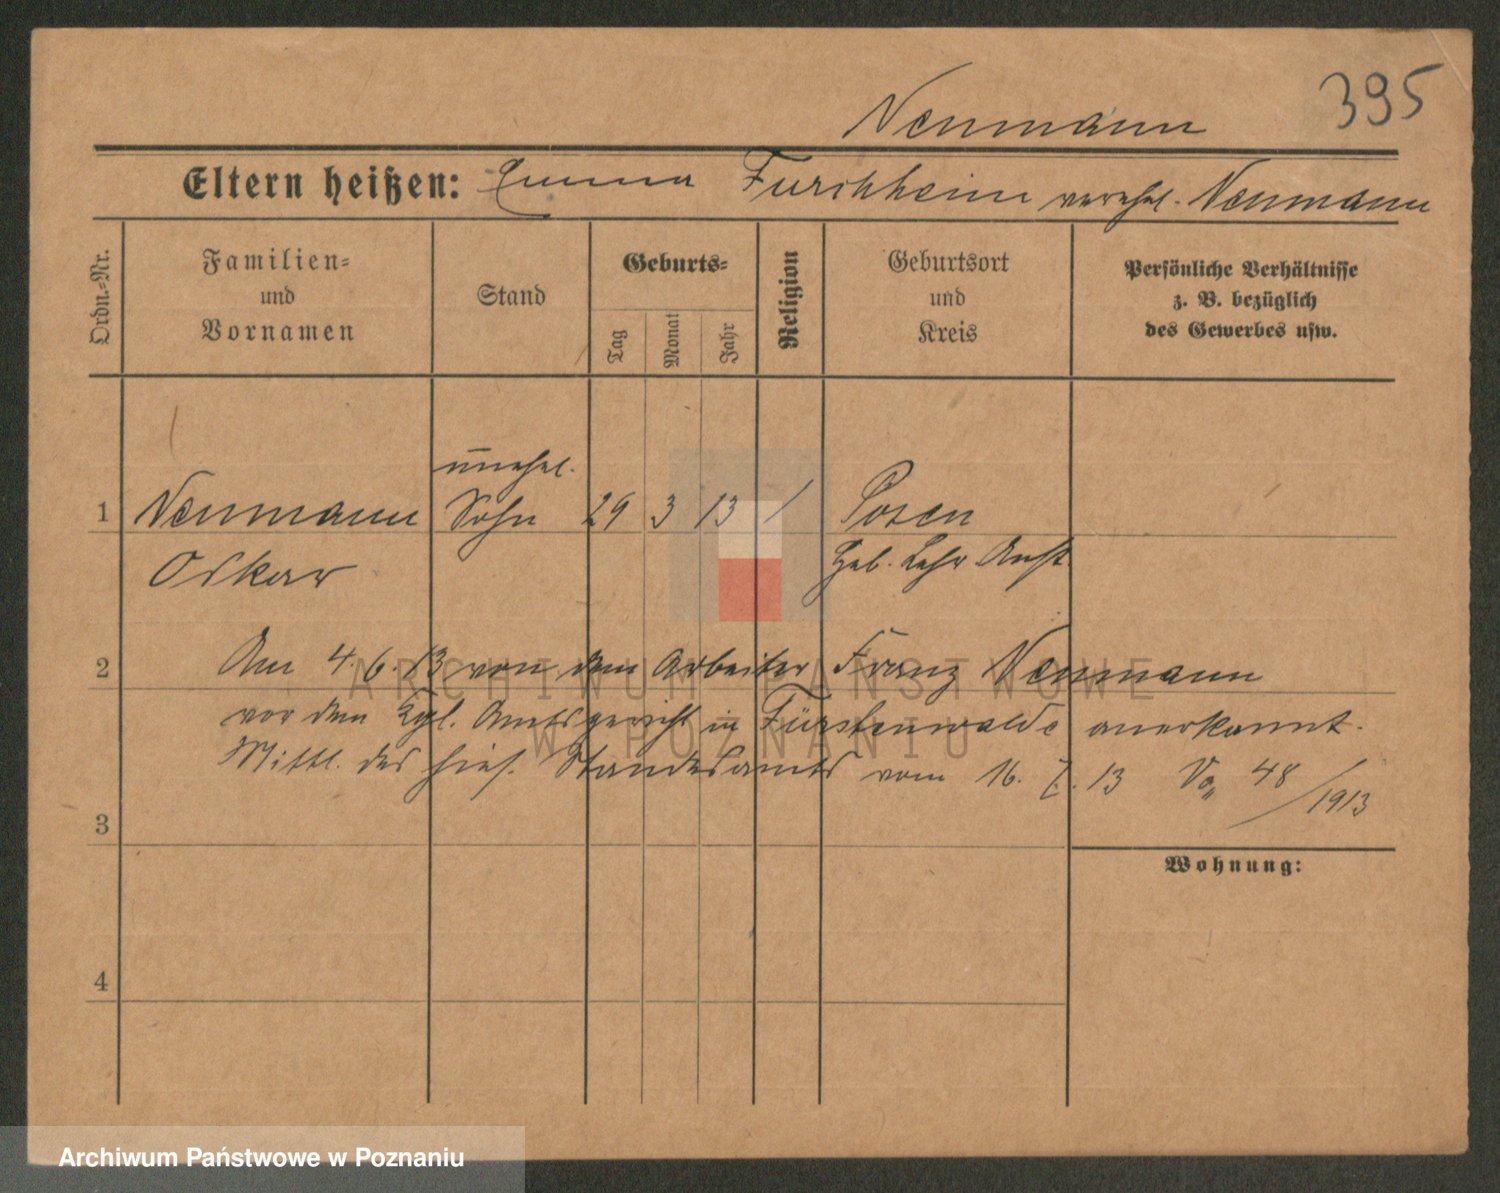 395
Neumann
Eltern heißen: Emma Furchheim verehel. Neumann
Ordn.-Nr.
Familien-
und
Vornamen
Stand
Geburts-
Tag
Monat
Jahr
Religion
Geburtsort
und
Kreis
Persönliche Verhältnisse
z. B. bezüglich
des Gewerbes usw.
unehel.
1 Neumann Sohn 29 3 13 / Posen
Oskar Heb. Lehr Anst.
2 Am 4. 6. 13 von dem Arbeiter Franz Neumann
vor dem Kgl. Amtsgericht in Fürstenwalde anerkannt.
Mittl. des hies. Standesamts vom 16. 7. 13 48/1913
3
Wohnung:
4
ARCHIWUM PAŃSTWOWE
W POZNANIU
Archiwum Państwowe w Poznaniu